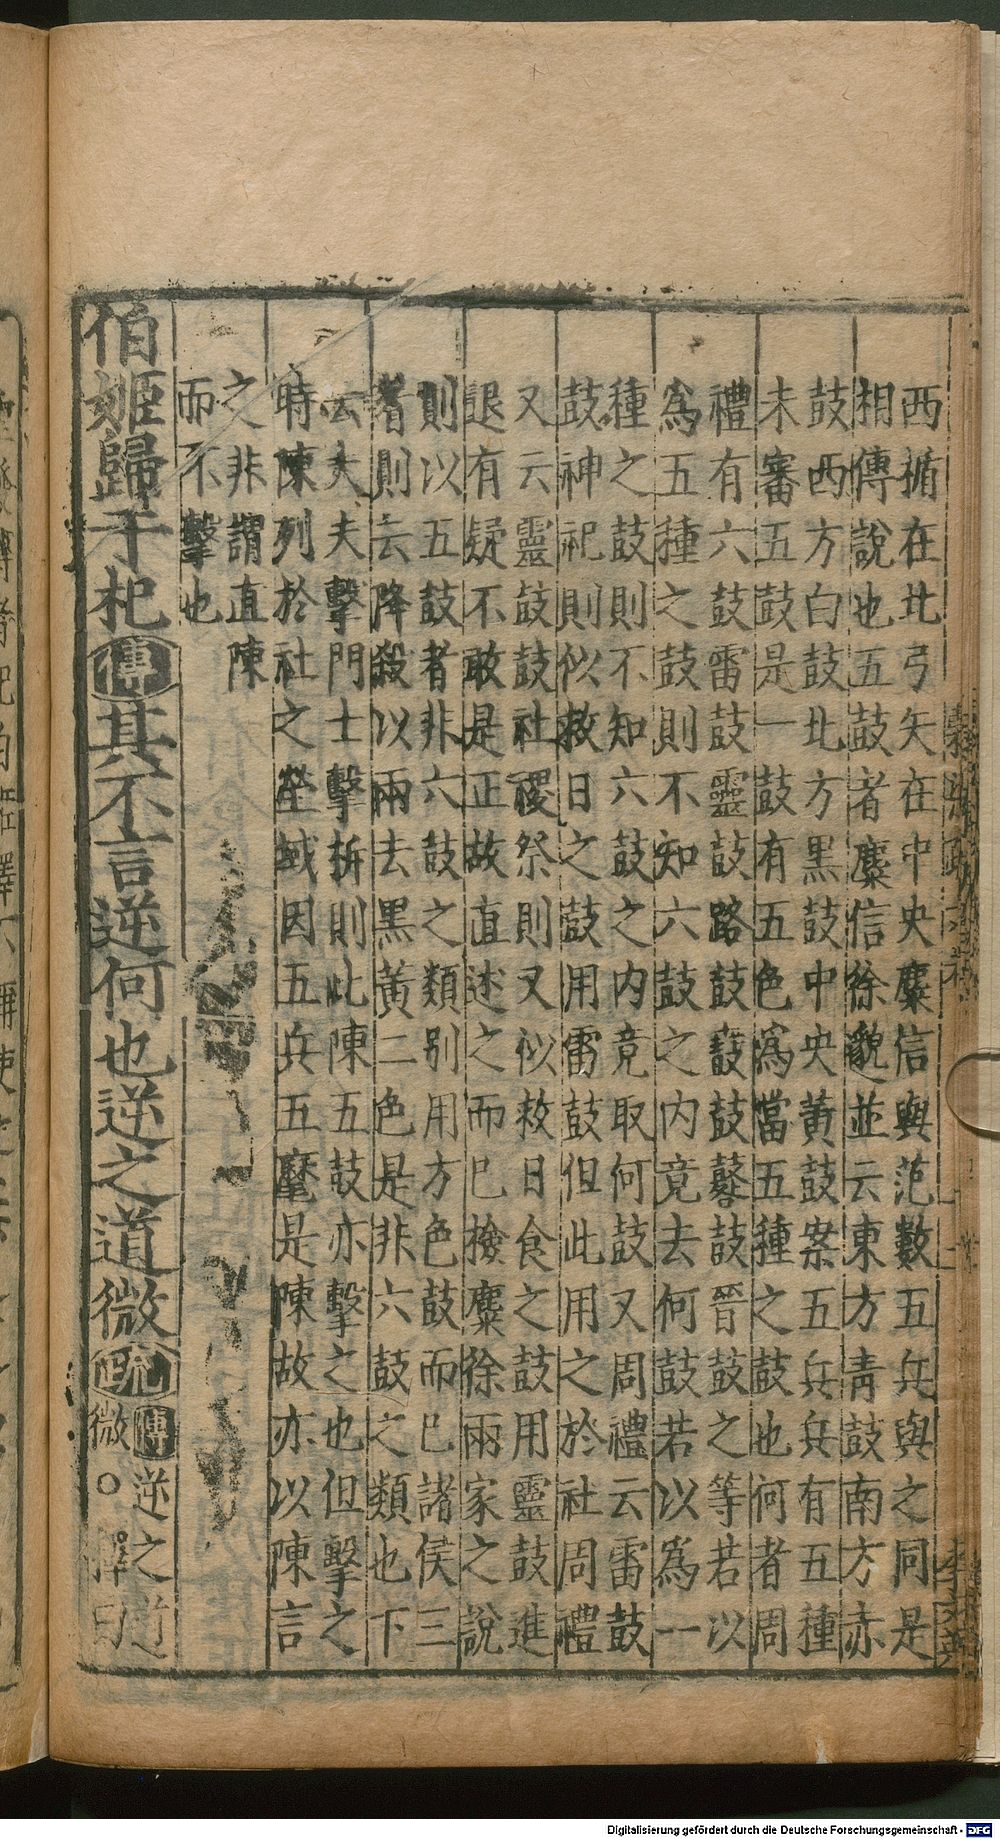 西楯在北弓矢在中央麋信與范數五兵與之同是
相傳說也五鼓者麋信徐邈並云東方青鼓南方赤
鼓西方白鼓北方黑鼓中央黃鼓案五兵兵有五種
未審五鼓是一鼓有五色爲當五種之鼓也何者周
禮有六鼓雷鼓靈鼓路鼓鼖鼓鼛鼓晉鼓之等若以
爲五種之鼓則不知六鼓之內竟去何鼓若以爲一
種之鼓則不知六鼓之內竟取何鼓又周禮云雷鼓
鼓神祀則似救日之鼓用雷鼓但此用之於社周禮
又云靈鼓鼓社禝祭則又似救日食之鼓用靈鼓進
退有疑不敢是正故直述之而已撿麋徐兩家之說
則以五鼓者非六鼓之類別用方色鼓而已諸侯三
者則云降殺以兩去黑黃二色是非六鼓之類也下
云大夫擊門士擊柝則此陳五鼓亦擊之也但擊之
時陳列於社之塋域因五兵五麾是陳故亦以陳言
之非謂直陳
而不擊也
伯姬歸于杞傳其不言逆何也逆之道微疏傳逆之道
微○釋曰
Digitalisierung gefördert durch die Deutsche Forschungsgemeinschaft - DFG